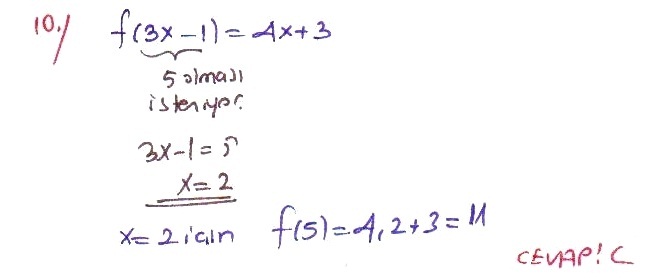 10./ f(3x-1) = 4x+3
5 olması
isteniyor.
3x-1 = 5
x = 2
x = 2 için f(5) = 4.2+3 = 11
CEVAP: C